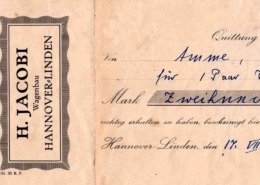 H. JACOBI
Wagenbau
HANNOVER-LINDEN
Quittung
Von Amme,
für 1 Paar
Mark Zweihun
richtig erhalten zu haben, bescheinigt
Hannover-Linden, den 17. VIII